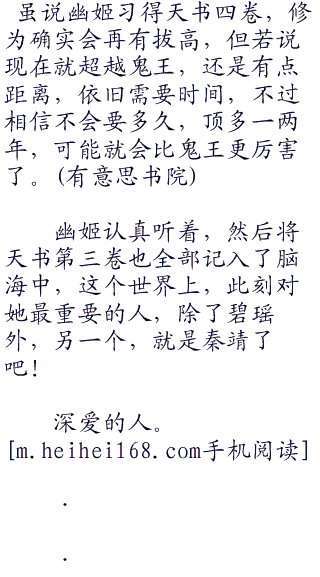 虽说幽姬习得天书四卷，修
为确实会再有拔高，但若说
现在就超越鬼王，还是有点
距离，依旧需要时间，不过
相信不会要多久，顶多一两
年，可能就会比鬼王更厉害
了。(有意思书院)
幽姬认真听着，然后将
天书第三卷也全部记入了脑
海中，这个世界上，此刻对
她最重要的人，除了碧瑶
外，另一个，就是秦靖了
吧！
深爱的人。
[m.heihei168.com手机阅读]
.
.